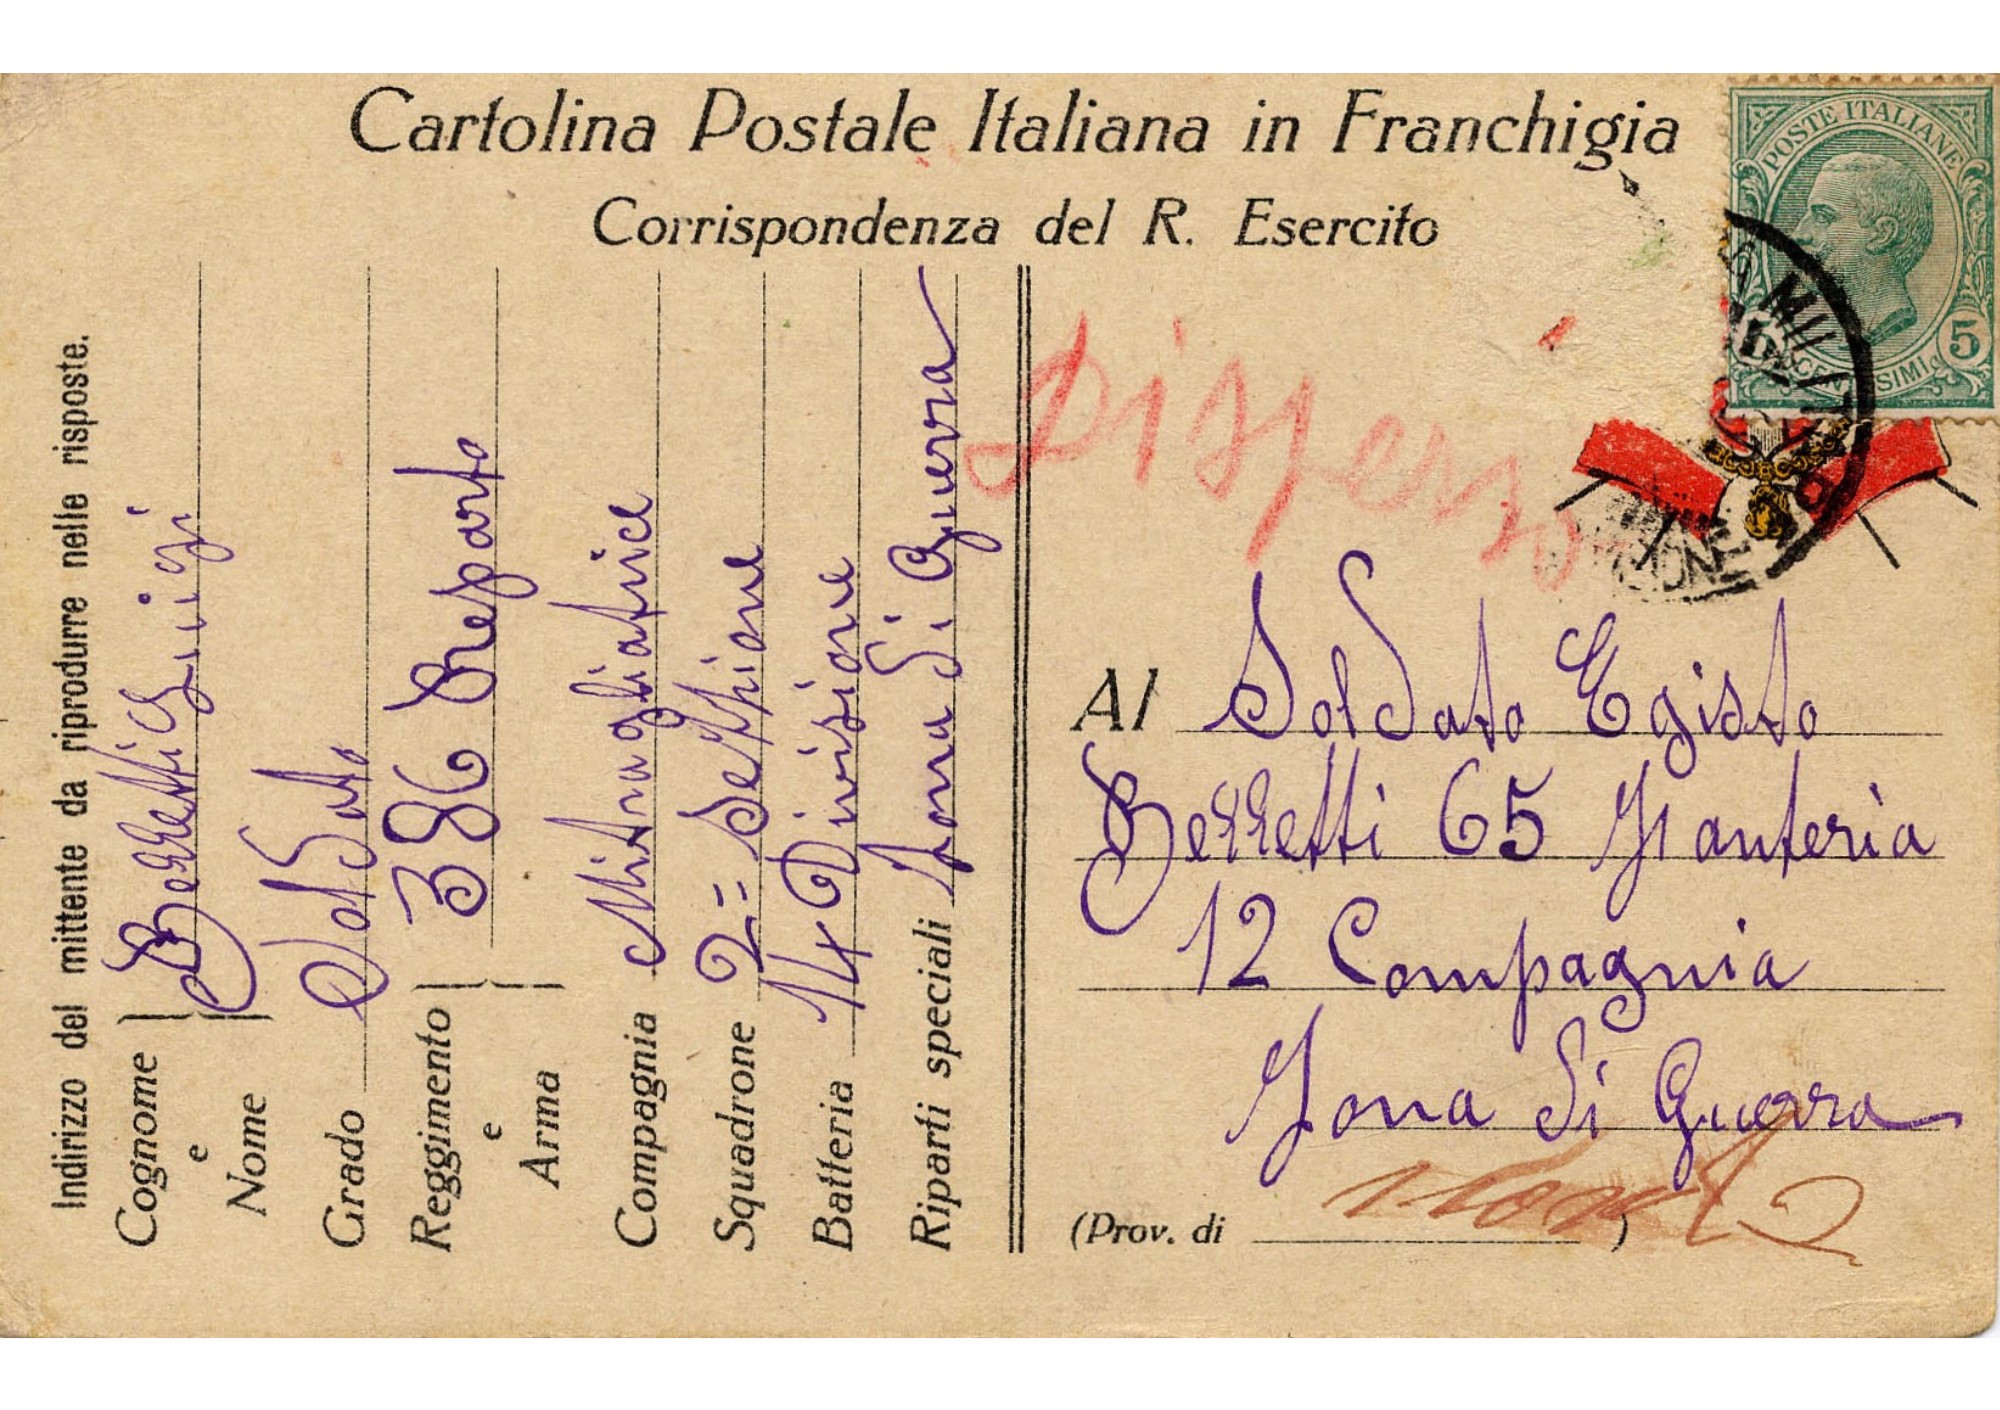 Cartolina Postale Italiana in Franchigia
Corrispondenza del R. Esercito
POSTE ITALIANE
CENTESIMI 5
Indirizzo del mittente da riprodurre nelle risposte.
Cognome e Nome Berretti Luigi
Grado Soldato
Reggimento e Arma 386 Reparto
Compagnia Mitragliatrice
Squadrone 2= Sezzione
Batteria 14 Divisione
Riparti speciali Zona di Guerra
Disperso
Al Soldato Egisto
Berretti 65 Fanteria
12 Compagnia
Zona di Guerra
(Prov. di )